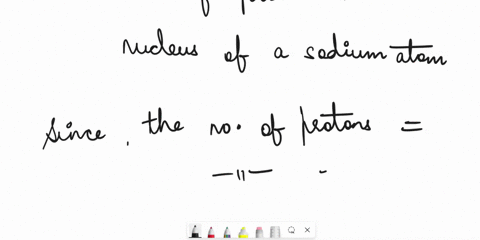 of
nucleus of a sodium atom
Since, the no. of protons =
—〃—